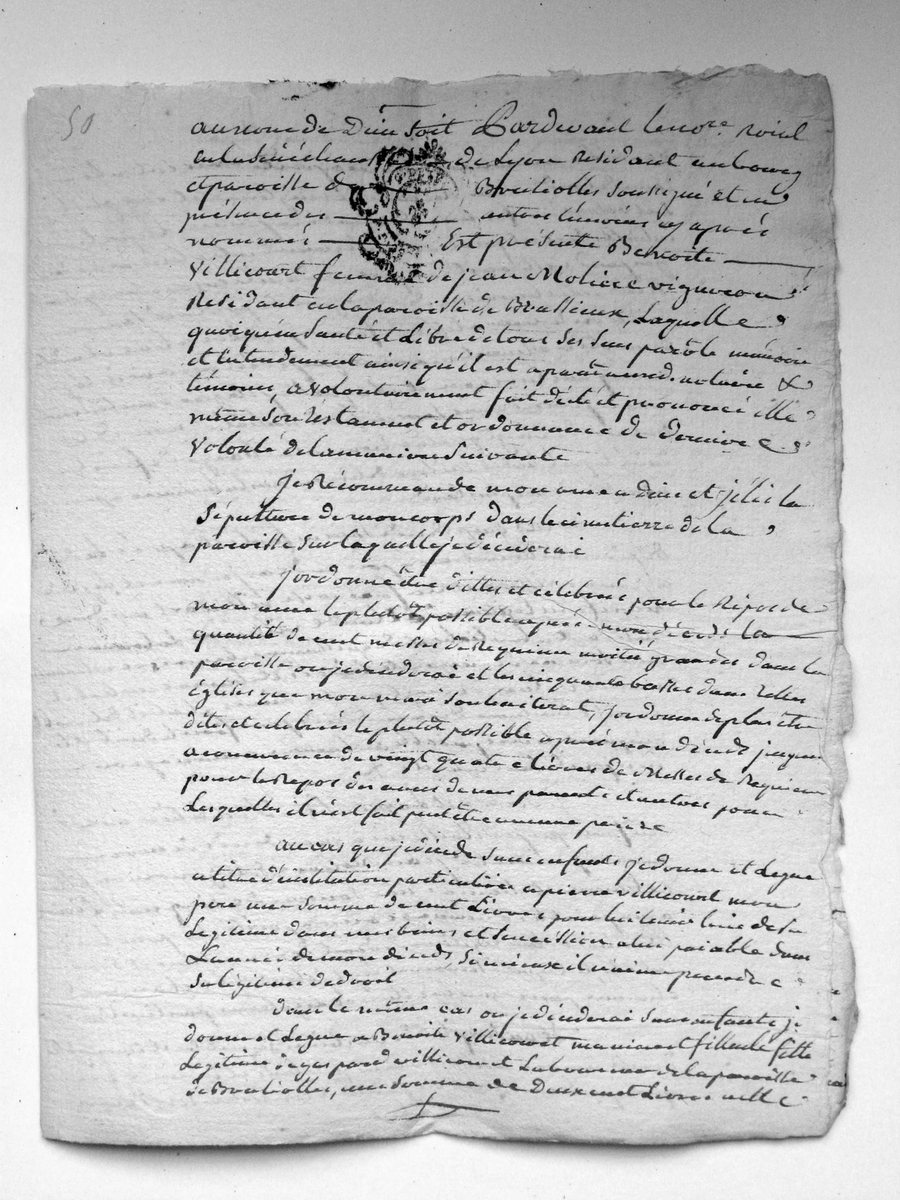 50
au nom de Dieu soit Pardevant le no.re roial
en la sénéchaussée de Lyon Residant au bourg
et paroisse de Brulliolles soussigné et en
présence des autres témoins cy après
nommés Est présente Benoite
Villicourt femme de jean Moliere vigneron
Residant en la paroisse de Brussieux, Laquelle
quoiqu'en santé et Libre de tous ses sens parole mémoire
et entendement ainsi qu'il est aparut aud. notaire &
témoins, a volontairement fait dicté et prononcé elle
même son testament et ordonnance de derniere
volonté de la maniere suivante
je Recommande mon ame a Dieu et j'élis la
sépulture de mon corps dans le cimetierre de la
paroisse sur laquelle je décéderai
j'ordonne être dittes et célébrés pour le Repos de
mon ame le plutot possible après mon décéds la
quantité de cent messes de Requiem moitié grandes dans la
paroisse ou je décéderai et les cinquante basses dans telles
églises que mon mari souhaiterat, j'ordonne de plus être
dites et célébrés le plutot possible après mon décéds jusques
a concurrence de vingt quatre Livres de Messes de Requiem
pour le Repos des ames de mes parents et autres pour
Lesquelles il m'est fait peut être aucune peine
au cas que je décéde sans enfants je donne et Legue
a titre d'institution particuliere a pierre villicourt mon
pere une somme de cent Livres pour lui tenir lieu de sa
Legitime dans mes biens et succession a lui paiable dans
L'année de mon décéds, si mieux il n'aime prendre
sa légitime de droit
Dans le même cas ou je décéderai sans enfants je
donne et Legue a Benoite Villicourt ma niece et filleule fille
Legitime de gaspard villicourt Laboureur de la paroisse
de Brulliolles, une somme de Deux cent Livres